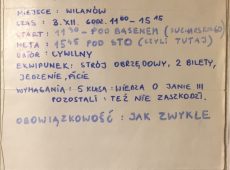 MIEJSCE : WILANÓW
CZAS : 8.XII. GODZ. 11⁰⁰ - 15⁴⁵
START : 11³⁰ - POD BASENEM (INFLANCKA)
META : 15⁴⁵ POD STO (CZYLI TUTAJ)
UBIÓR : CYWILNY
EKWIPUNEK : STRÓJ OBRZĘDOWY, 2 BILETY,
JEDZENIE, PICIE
WYMAGANIA : 5 KLASA : WIEDZA O JANIE III
POZOSTALI : TEŻ NIE ZASZKODZI.
OBOWIĄZKOWOŚĆ : JAK ZWYKLE